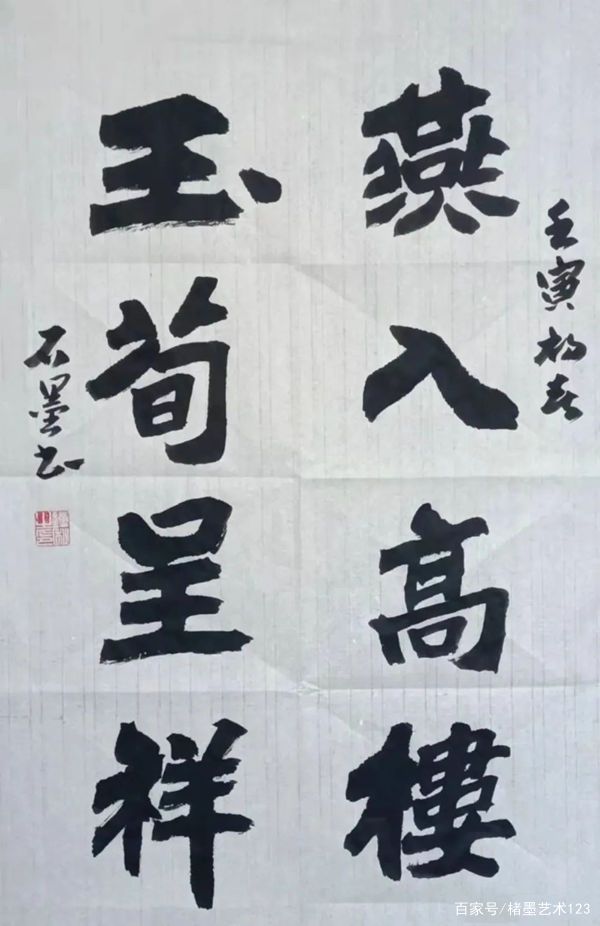 壬寅初春
燕入高樓
玉筍呈祥
石墨书
百家号/楮墨艺术123